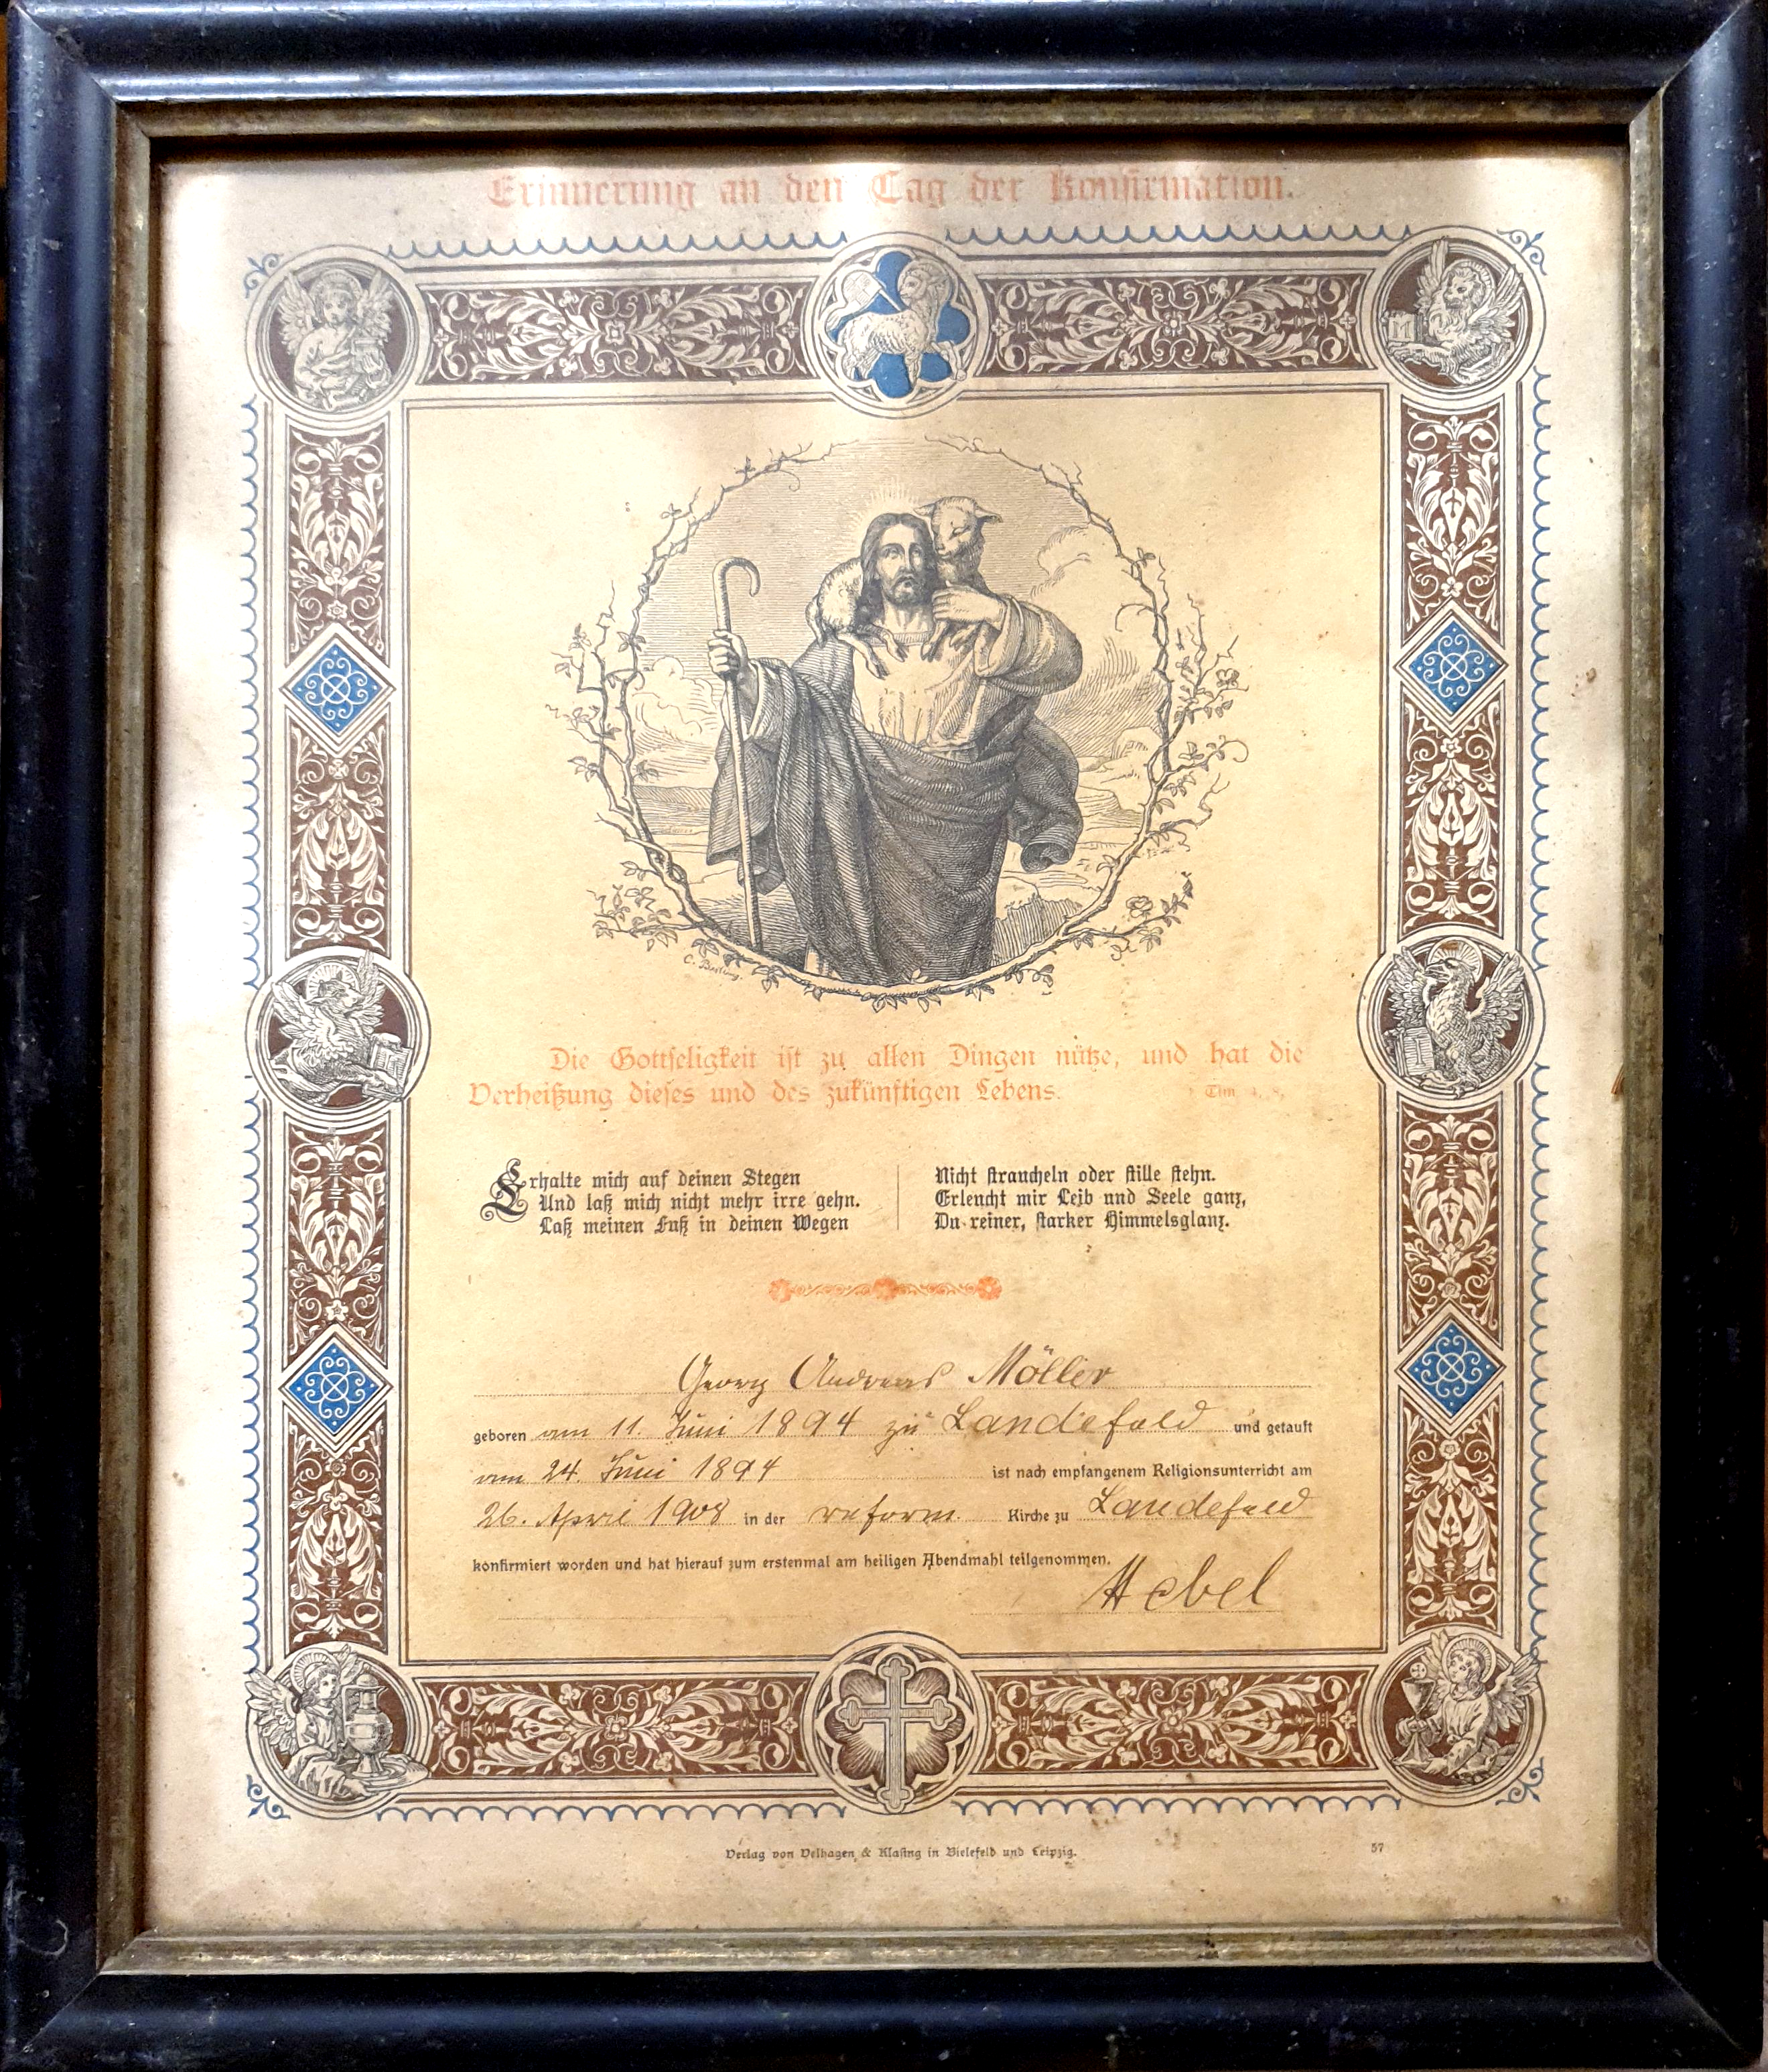 Erinnerung an den Tag der Konfirmation.
C. Bertling.
Die Gottseligkeit ist zu allen Dingen nütze, und hat die
Verheißung dieses und des zukünftigen Lebens. 1 Tim. 4, 8.
Erhalte mich auf deinen Stegen
Und laß mich nicht mehr irre gehn.
Laß meinen Fuß in deinen Wegen
Nicht straucheln oder stille stehn.
Erleucht mir Leib und Seele ganz,
Du reiner, starker Himmelsglanz.
Georg Andreas Möller
geboren am 11. Juni 1894 zu Landefeld und getauft
am 24. Juni 1894 ist nach empfangenem Religionsunterricht am
26. April 1908 in der reform. Kirche zu Landefeld
konfirmiert worden und hat hierauf zum erstenmal am heiligen Abendmahl teilgenommen.
Hebel
Verlag von Velhagen & Klasing in Bielefeld und Leipzig. 57